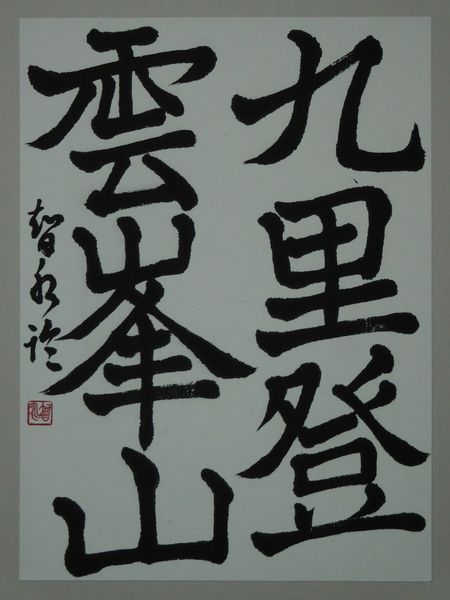 九里登
雲峯山
智永臨